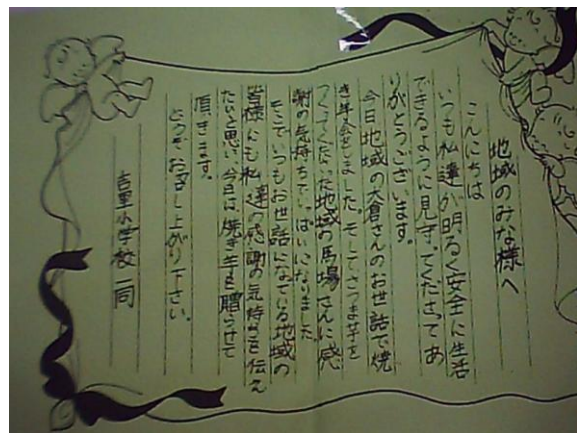 地域のみな様へ
こんにちは
いつも私達が明るく安全に生活
できるように見守ってくださってあ
りがとうございます。
今日地域の大倉さんのお世話で焼
き芋会をしました。そしてさつま芋を
つくってくださった地域の馬場さんに感
謝の気持ちでいっぱいになりました
そこでいつもお世話になっている地域の
皆様にも私達の感謝の気持ちを伝え
たいと思い、今日は焼き芋を贈らせて
頂きます。
どうぞお召し上がり下さい。
吉里小学校一同